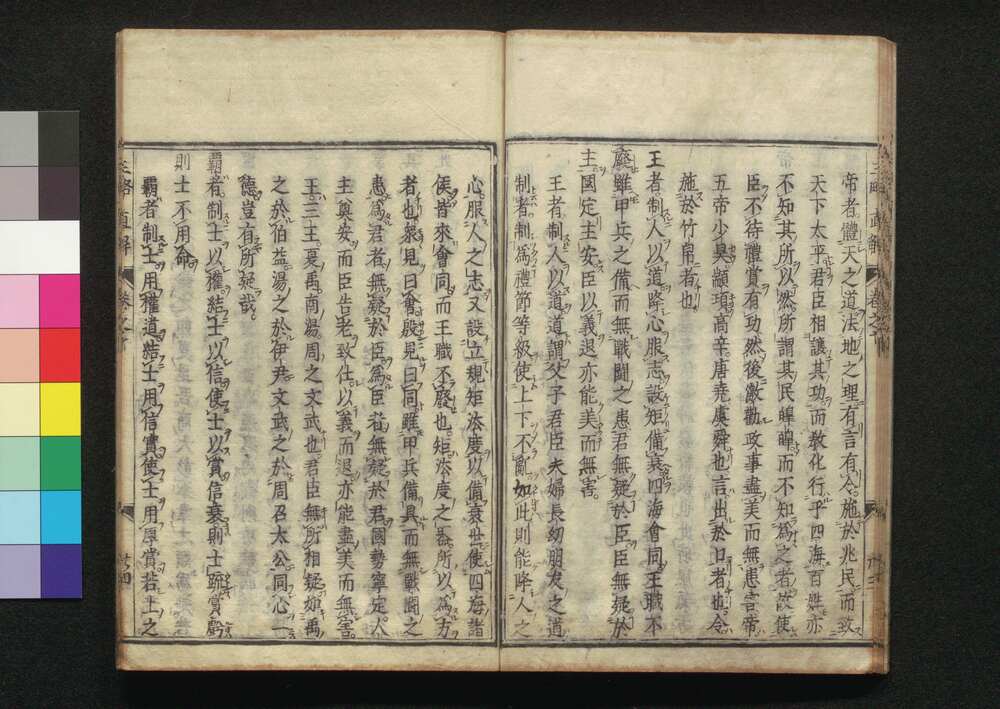 帝者體天之道法地之理有言有令施於兆民而致
天下太平君臣相讓其功而敎化行乎四海百姓亦
不知其所以然所謂其民皥皥而不知爲之者故使
臣不待禮賞有功然後激勸政事盡美而無患害帝
五帝少昊顓頊高辛唐堯虞舜也言出於口者也令
施於竹帛者也
王者制人以道降心服志設矩備衰四海會同王職不
廢雖甲兵之備而無戰鬪之患君無疑於臣臣無疑於
主國定主安臣以義退亦能美而無害
王者制人以道道謂父子君臣夫婦長幼朋友之道
制者制爲禮節等級使上下不亂如此則能降人之
心服人之志又設立規矩法度以備衰世使四海諸
侯皆來會同而王職不廢也矩法度之器所以爲方
者也衆見曰會殷見曰同雖甲兵備具而無戰鬪之
患爲君者無疑於臣爲臣者無疑於君國勢寧定人
主奠安而臣告老致仕以義而退亦能盡美而無害
王三王夏禹商湯周之文武也君臣無所相疑如禹
之於伯益湯之於伊尹文武之於周召太公同心一
德豈有所疑哉
霸者制士以權結士以信使士以賞信衰則士疏賞虧
則士不用命
霸者制士用權道結士用信實使士用厚賞若士之
三略直解
卷之中